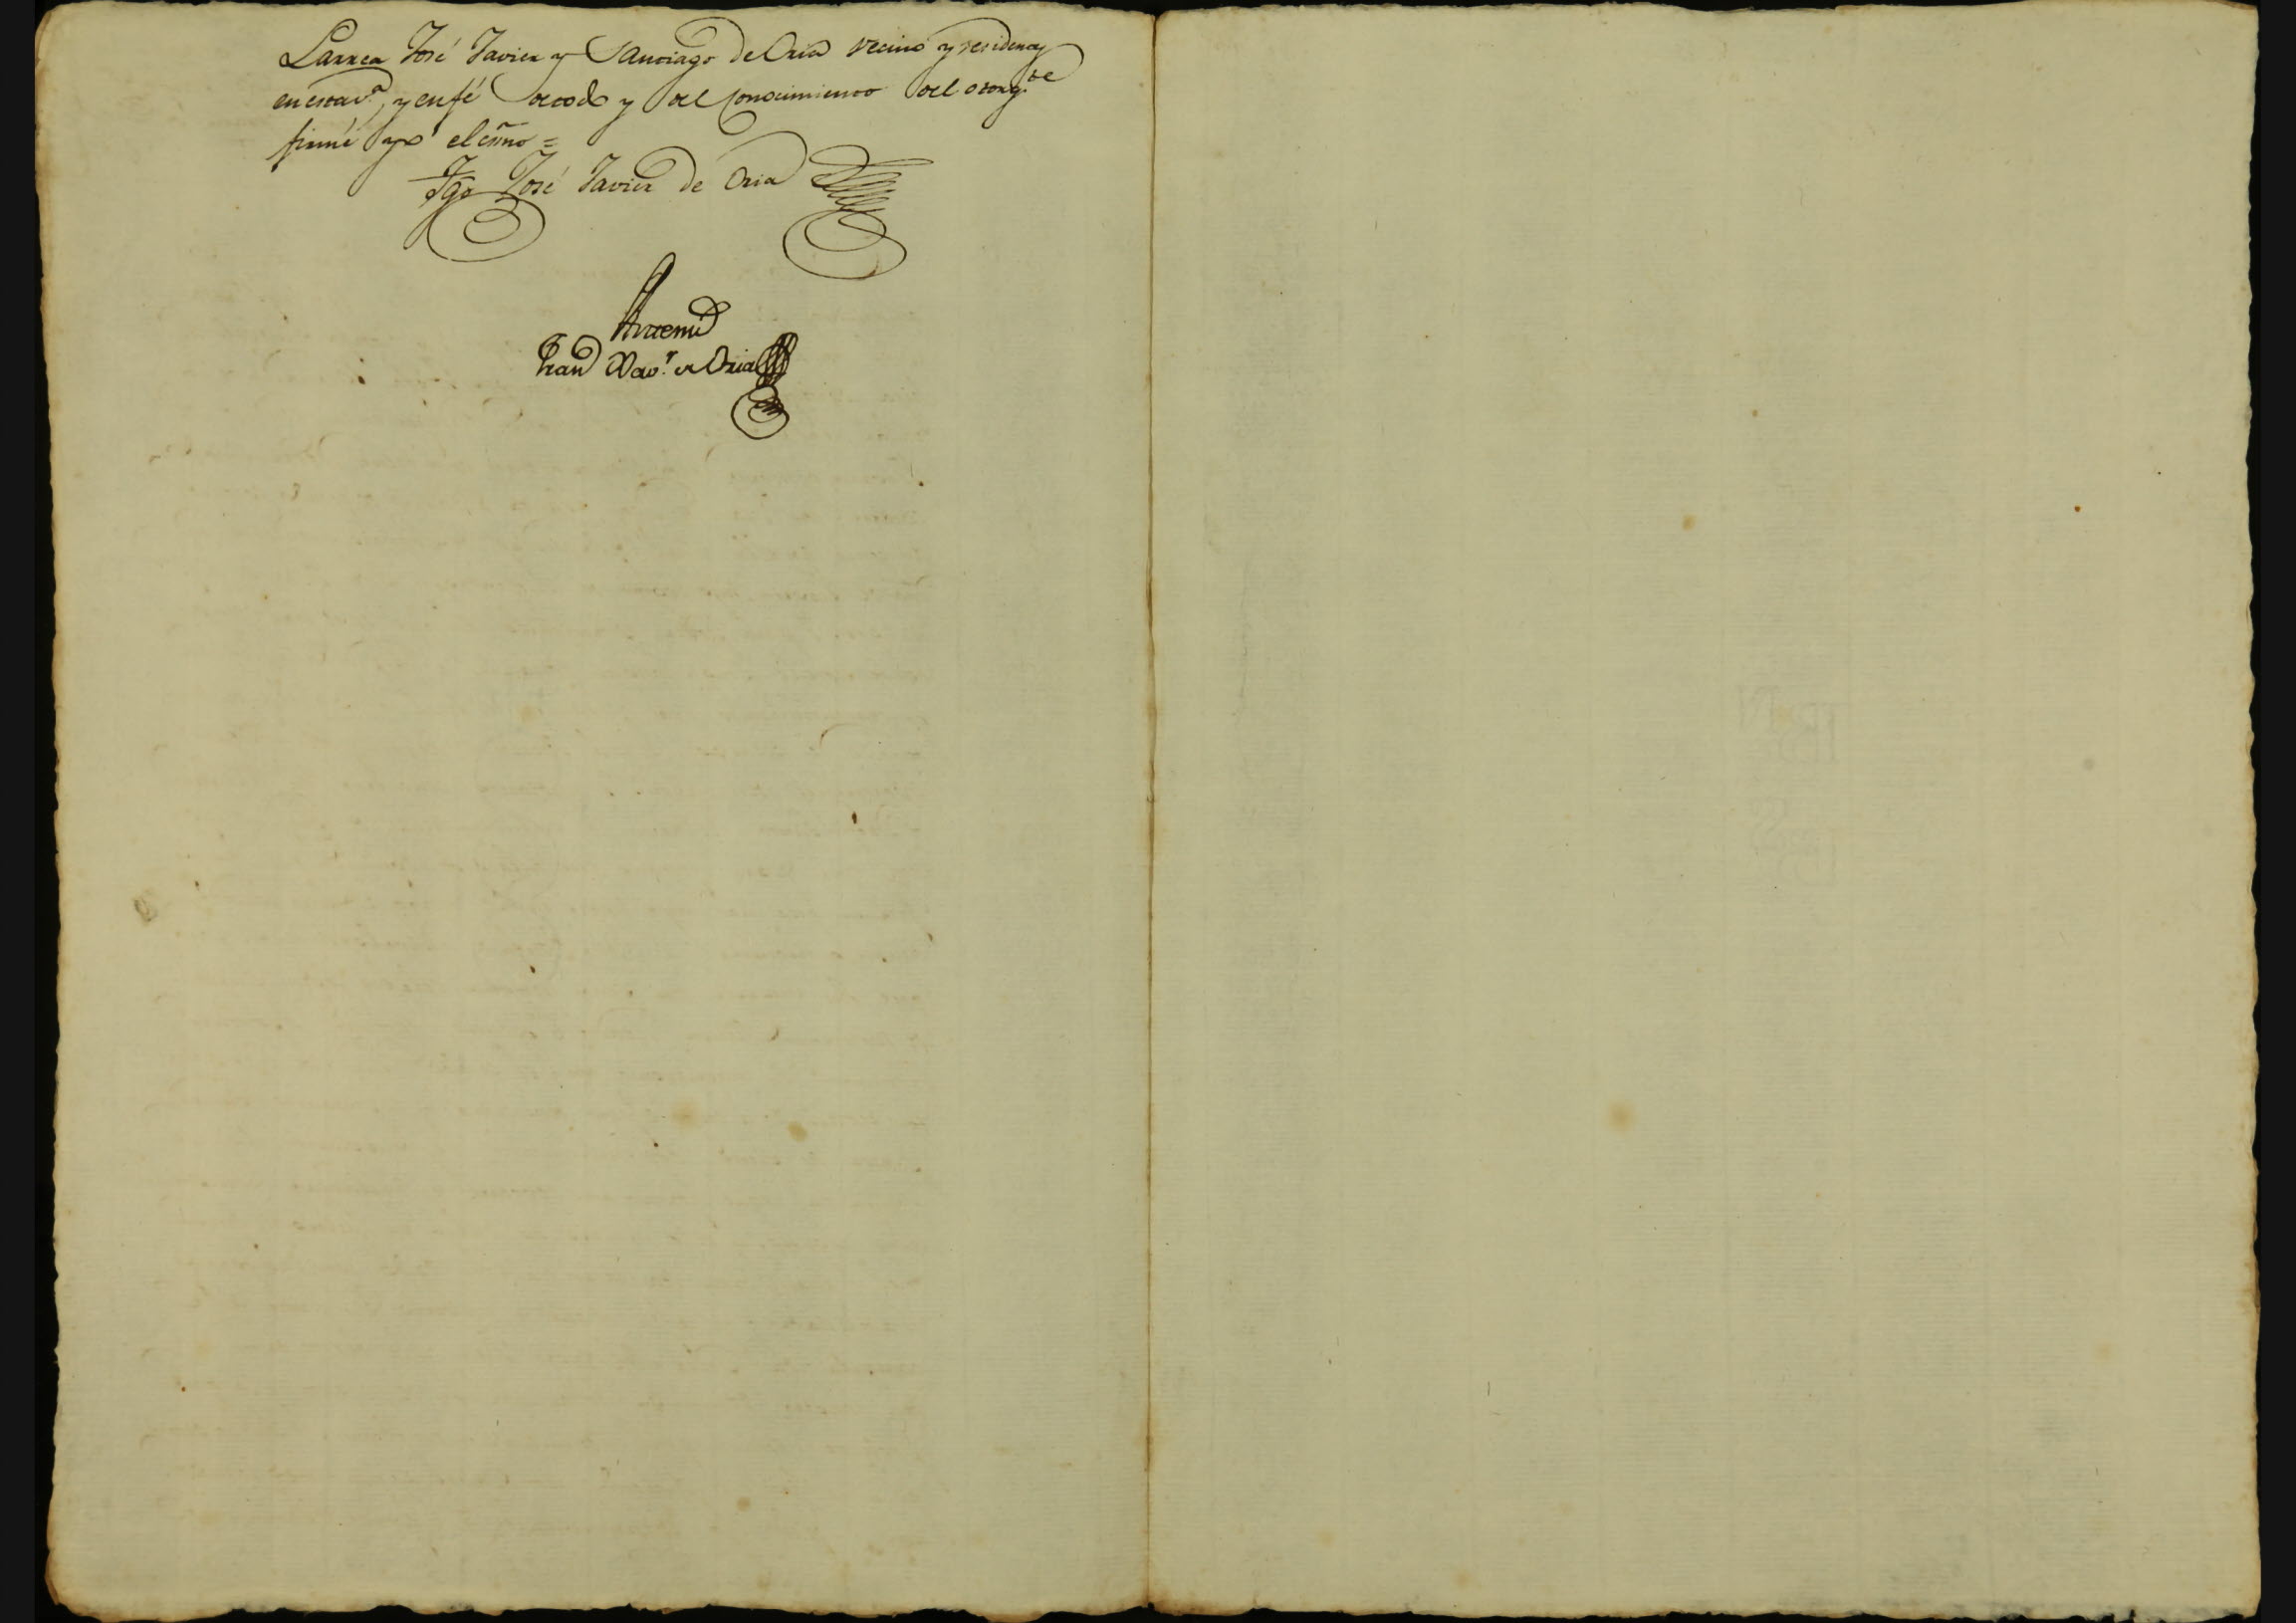 Larrea José Javier y Santiago de Oria vecino y residentes
en esta v.ª, y en fé de todo y del conocimiento del otorg.te
firmé yo el esñno =
Tgo José Javier de Oria
Ante mi
Fran.co Xav.r de Oria